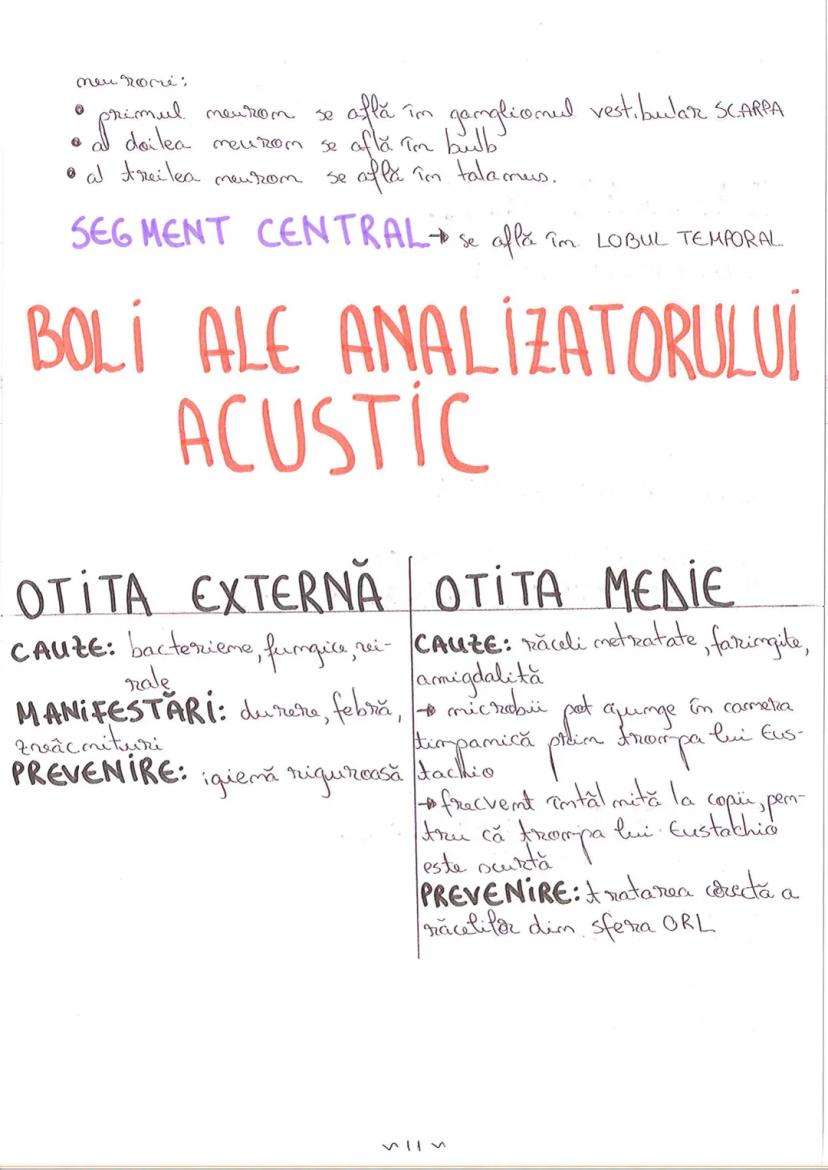 neuroni:
• primul neuron se află în ganglionul vestibular SCARPA
• al doilea neuron se află în bulb
• al treilea neuron se află în talamus.
SEGMENT CENTRAL → se află în LOBUL TEMPORAL
BOLI ALE ANALIZATORULUI
ACUSTIC
OTITA EXTERNĂ
CAUZE: bacteriene, fungice, vi-
rale
MANIFESTĂRI: durere, febră,
zvâcnituri
PREVENIRE: igienă riguroasă
OTITA MEDIE
CAUZE: răceli netratate, faringite,
amigdalită
→ microbii pot ajunge în camera
timpanică prin trompa lui Eus-
tachio
→ frecvent întâlnită la copii, pen-
tru că trompa lui Eustachio
este scurtă
PREVENIRE: tratarea corectă a
răcelilor din sfera ORL
~ 11 ~